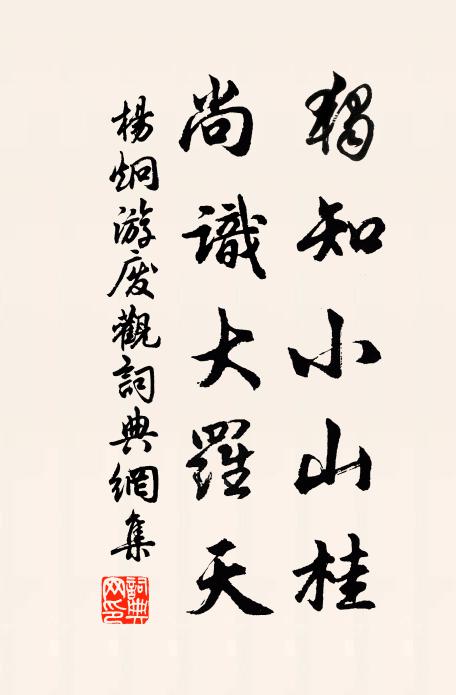 獨知小山桂
尚識大羅天
楊炯游廢觀詞典網集
詞典网印